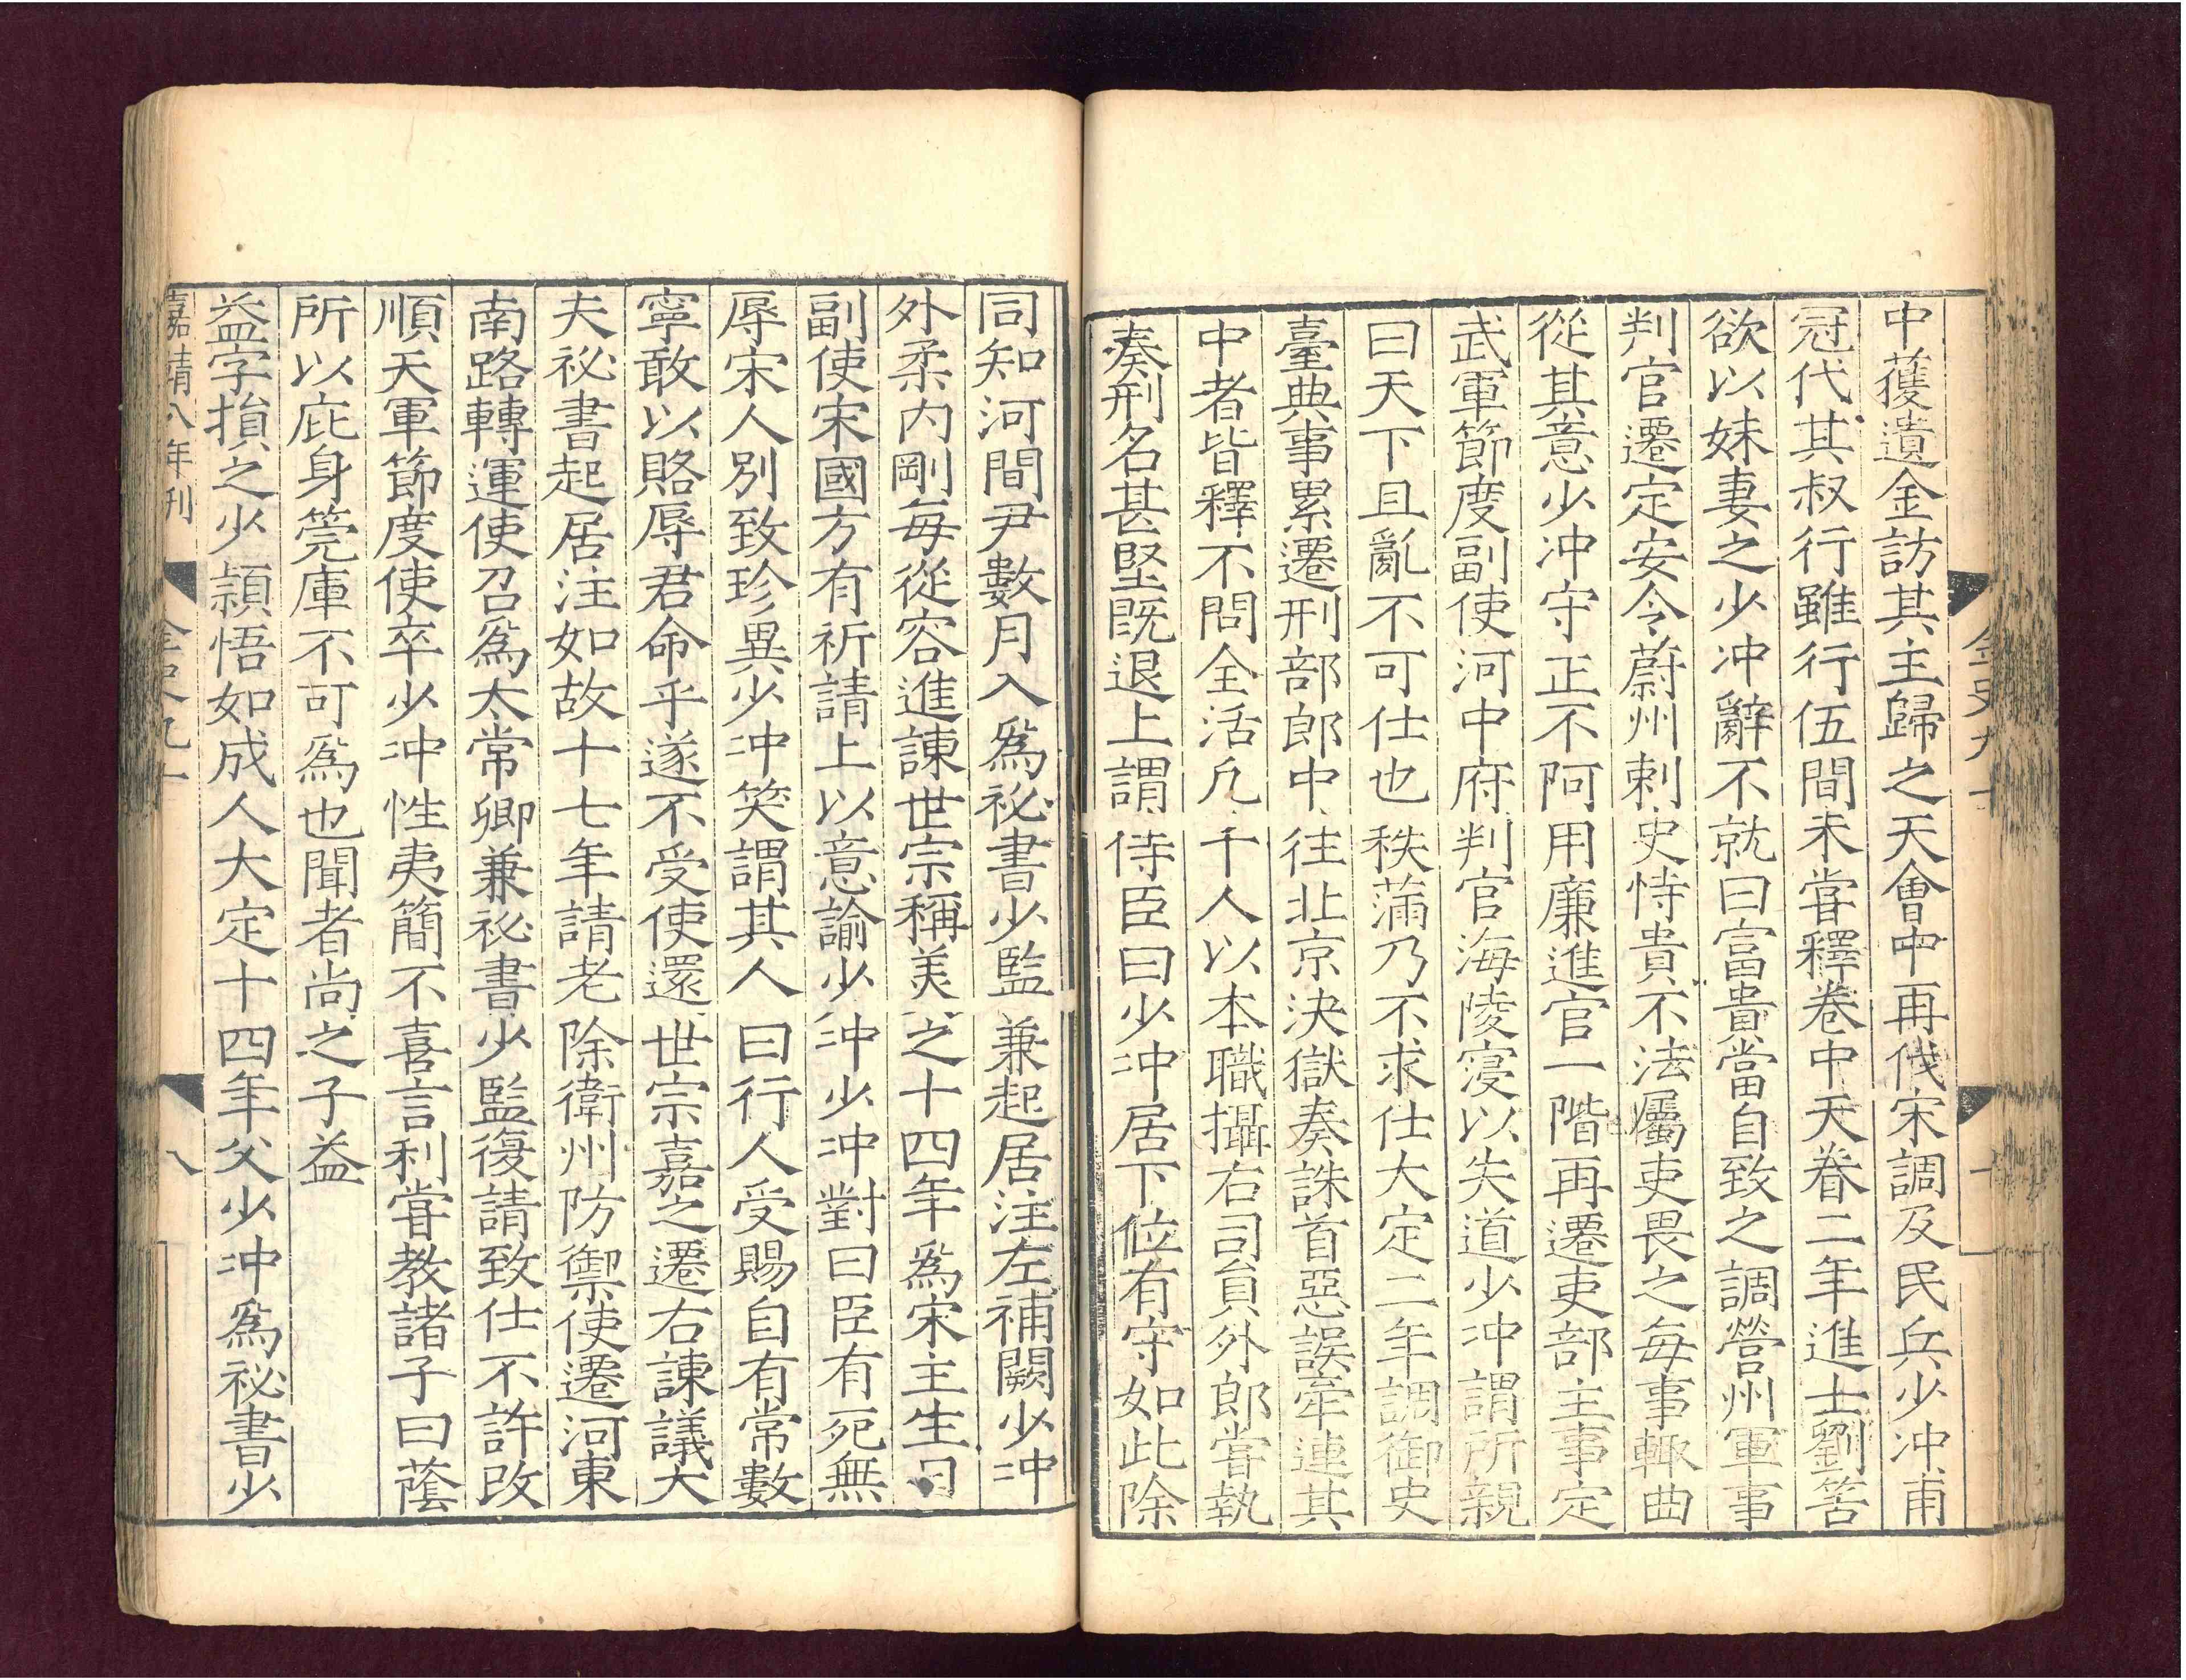 金史九十
中獲遺金訪其主歸之天會中再伐宋調及民兵少冲甫
冠代其叔行雖行伍間未甞釋卷中天眷二年進士劉筈
欲以妹妻之少冲辭不就曰富貴當自致之調營州軍事
判官遷定安令蔚州刺史恃貴不法屬吏畏之每事輙曲
從其意少冲守正不阿用廉進官一階再遷吏部主事定
武軍節度副使河中府判官海陵寖以失道少冲謂所親
曰天下且亂不可仕也秩蒲乃不求仕大定二年調御史
臺典事累遷刑部郎中往北京決獄奏誅首惡誤牽連其
中者皆釋不問全活凢千人以本職攝右司員外郎甞執
奏刑名甚堅既退上謂侍臣曰少冲居下位有守如此除
同知河間尹數月入爲祕書少監兼起居注左補闕少冲
外柔内剛每從容進諫世宗稱美之十四年爲宋主生日
副使宋國方有祈請上以意諭少冲少冲對曰臣有死無
辱宋人別致珍異少冲笑謂其人曰行人受賜自有常數
寧敢以賂辱君命乎遂不受使還世宗嘉之遷右諫議大
夫祕書起居注如故十七年請老除衛州防禦使遷河東
南路轉運使召爲太常卿兼祕書少監復請致仕不許改
順天軍節度使卒少冲性夷簡不喜言利甞教諸子曰蔭
所以庇身筦庫不可爲也聞者尚之子益
益字損之少頴悟如成人大定十四年父少冲爲祕書少
嘉靖八年刊
金史九十
八